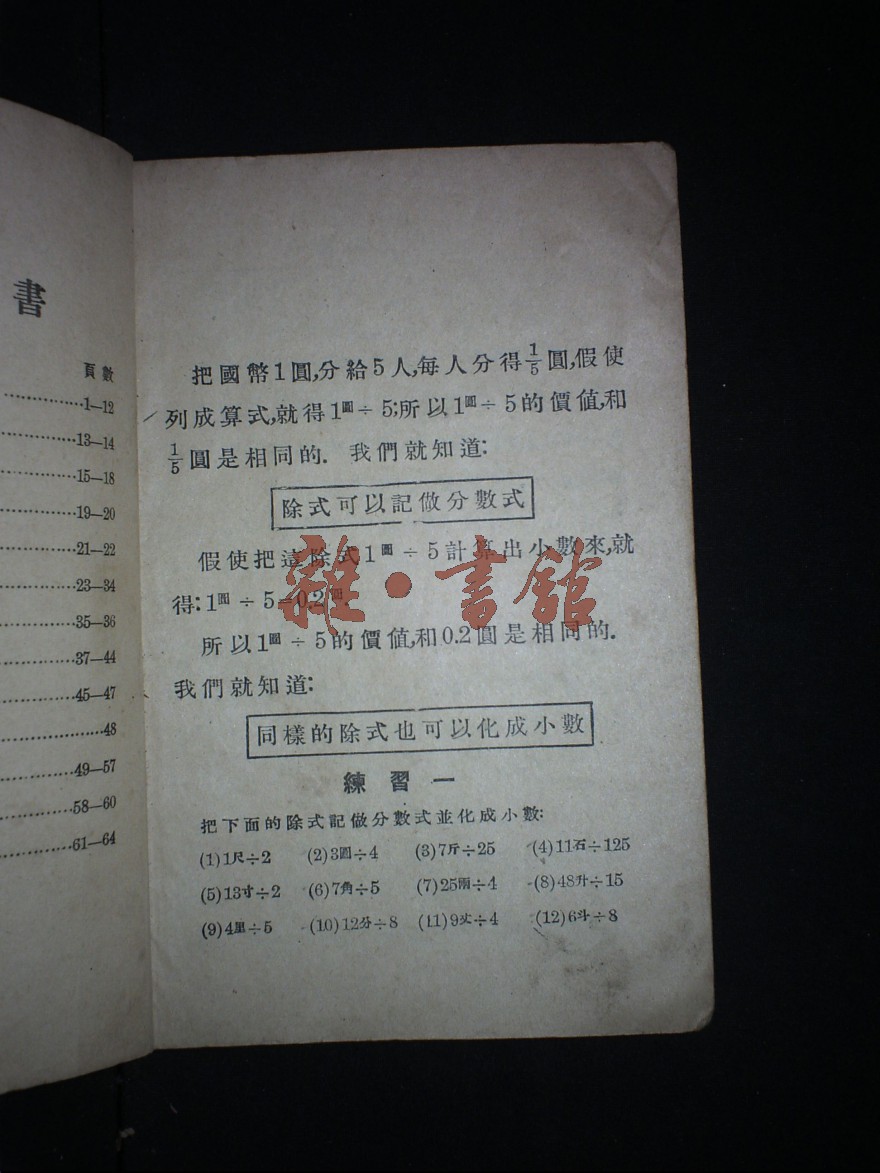 書
頁數
1—12
13—14
15—18
19—20
21—22
23—34
35—36
37—44
45—47
48
49—57
58—60
61—64
把國幣1圓,分給5人,每人分得1/5圓,假使
列成算式,就得1圓÷5;所以1圓÷5的價值,和
1/5圓是相同的. 我們就知道:
除式可以記做分數式
假使把這除式1圓÷5計算出小數來,就
得:1圓÷5=0.2圓
所以1圓÷5的價值,和0.2圓是相同的.
我們就知道:
同樣的除式也可以化成小數
練習一
把下面的除式記做分數式並化成小數:
(1)1尺÷2 (2)3圓÷4 (3)7斤÷25 (4)11石÷125
(5)13寸÷2 (6)7角÷5 (7)25兩÷4 (8)48升÷15
(9)4里÷5 (10)12分÷8 (11)9丈÷4 (12)6斗÷8
雜·書館